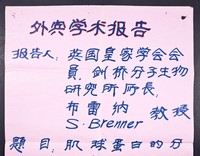 外宾学术报告
报告人：英国皇家学会会
员，剑桥分子生物
研究所所长，
布雷纳 教授
S. Brenner
题目：肌球蛋白的分